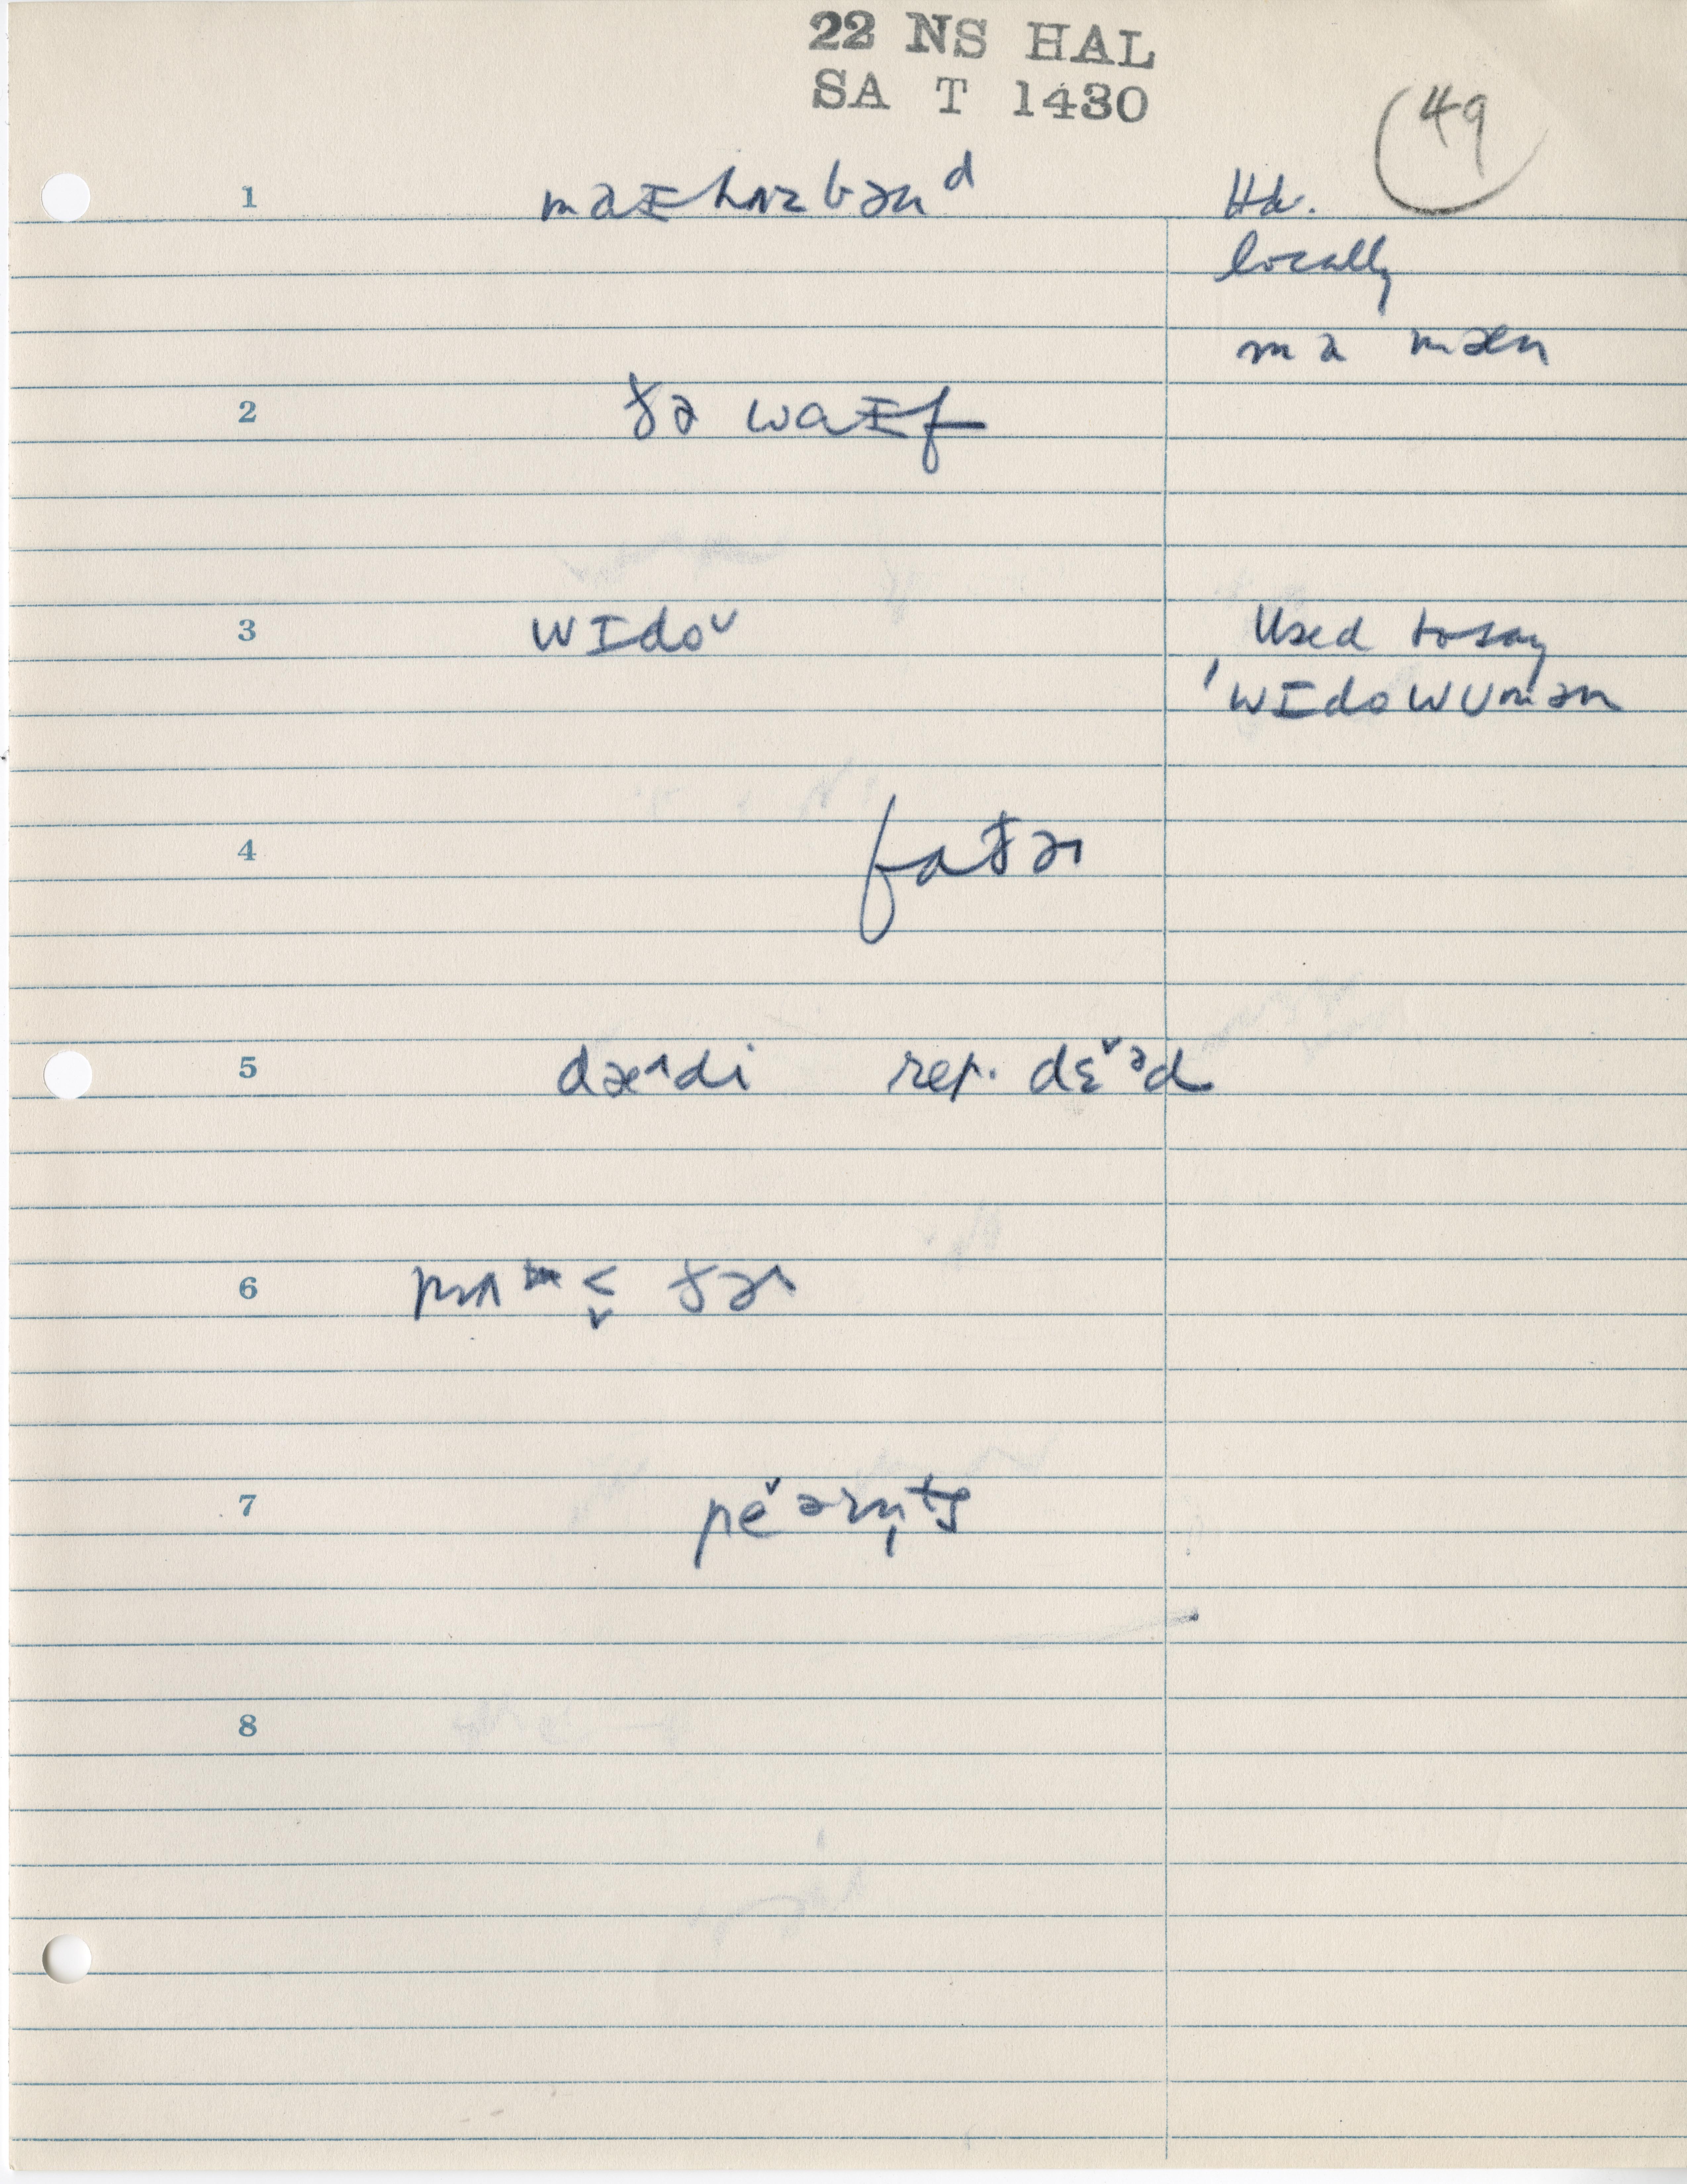 22 NS HAL
SA T 1430
49
1 maɪhʌzbən ᵈ Hd.
locally
mə mæn
2 ðə waɪf
3 wɪdoᵛ Used to say
'wɪdəwumən
4 faðəɹ
5 dæ˄di rep. dɛ˅ᵊd
6
7 pe˅ərn̩ts
8